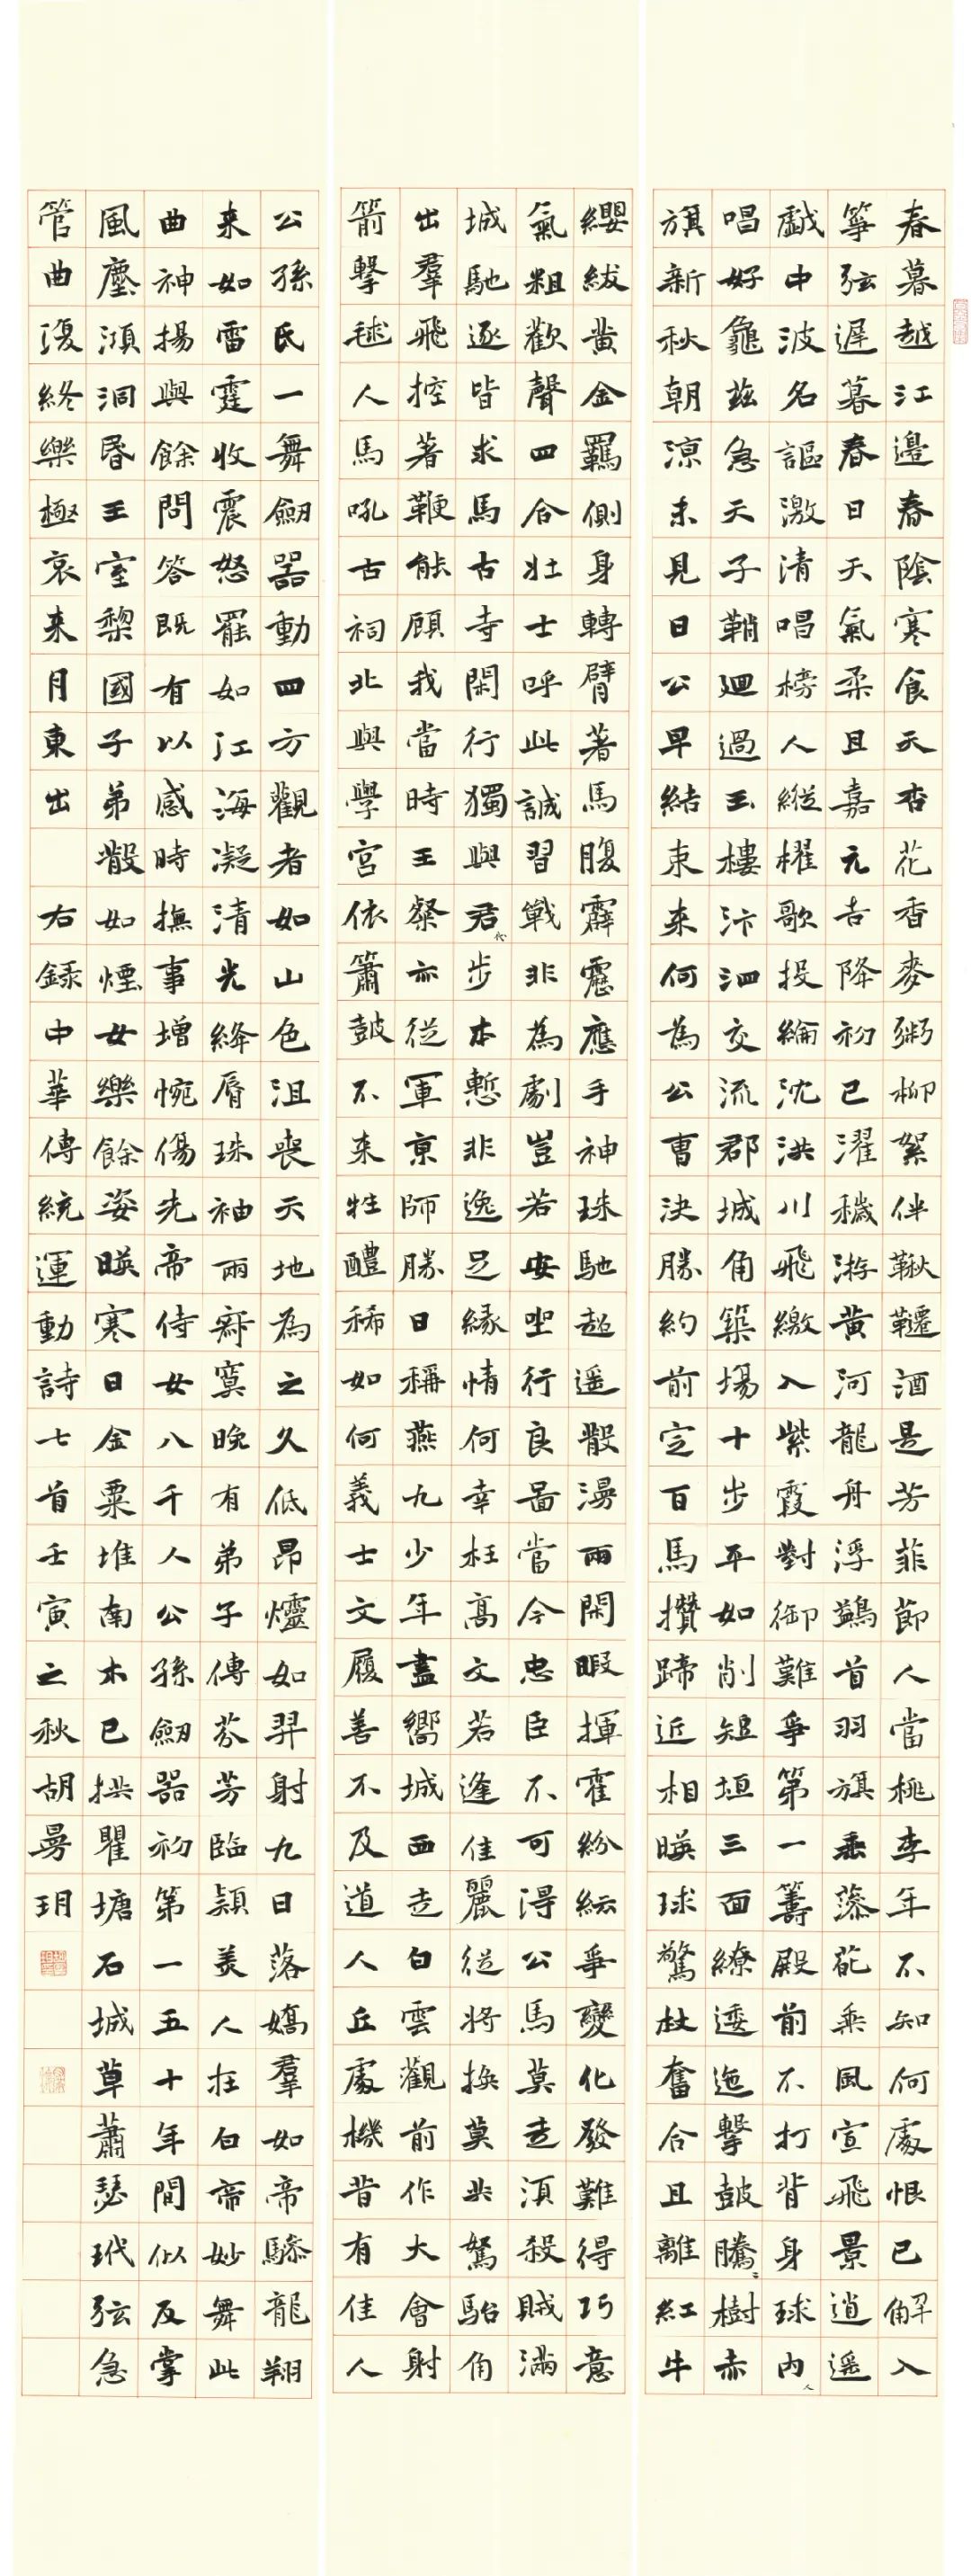 春暮越江邊春陰寒食天杏花香麥粥柳絮伴鞦韆酒是芳菲節人當桃李年不知何處恨已解入
箏弦遲暮春日天氣柔且嘉元吉降初已濯穢游黃河龍舟浮鷁首羽旗垂藻葩乘風宣飛景逍遥
戲中波名謳激清唱榜人縱櫂歌投綸沈洪川飛繳入紫霞對御難爭第一籌殿前不打背身球內人
唱好龜茲急天子鞘迴過玉樓汴泗交流郡城角築場十步平如削短垣三面繚逶迤擊鼓騰騰樹赤
旗新秋朝涼未見日公早結束來何為公曹決勝約前定百馬攢蹄近相映球驚杖奮合且離紅牛
纓紱黃金羈側身轉臂著馬腹霹靂應手神珠馳超遥散漫兩閑暇揮霍紛紜爭變化發難得巧意
氣粗歡聲四合壯士呼此誠習戰非為劇豈若安坐行良圖當今忠臣不可得公馬莫走須殺賊滿
城馳逐皆求馬古寺閑行獨與君代步本慙非逸足緣情何幸枉高文若逢佳麗從將換莫共駑駘角
出羣飛控著鞭能顧我當時王粲亦從軍京師勝日稱燕九少年盡嚮城西走白雲觀前作大會射
箭擊毬人馬吼古祠北與學宮依簫鼓不來牲醴稀如何義士文履善不及道人丘處機昔有佳人
公孫氏一舞劒器動四方觀者如山色沮喪天地為之久低昂㸌如羿射九日落嬌羣如帝驂龍翔
來如雷霆收震怒罷如江海凝清光絳脣珠袖兩寂寞晚有弟子傳芬芳臨潁美人在白帝妙舞此
曲神揚與餘問答既有以感時撫事增惋傷先帝侍女八千人公孫劒器初第一五十年間似反掌
風塵澒洞昏王室棃國子弟散如煙女樂餘姿映寒日金粟堆南木已拱瞿塘石城草蕭瑟玳弦急
管曲復終樂極哀來月東出 右錄中華傳統運動詩七首壬寅之秋胡曼玥